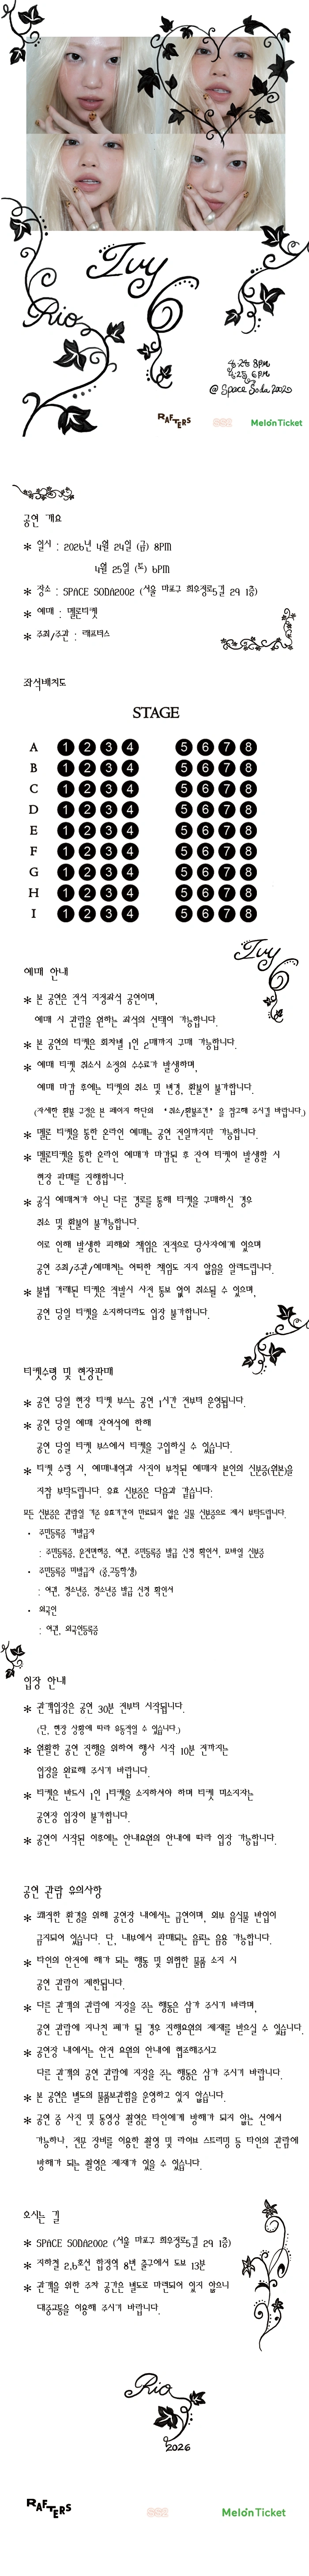 Ivy
Rio
6
4월 24일 8pm
4월 25일 6pm
@ Space Soda 2002
RAFTERS
MelonTicket
공연 개요
* 일시 : 2026년 4월 24일 (금) 8PM
4월 25일 (토) 6PM
* 장소 : SPACE SODA2002 (서울 마포구 희우정로5길 29 1층)
* 예매 : 멜론티켓
* 주최/주관 : 래프터스
좌석배치도
STAGE
A 1 2 3 4 5 6 7 8
B 1 2 3 4 5 6 7 8
C 1 2 3 4 5 6 7 8
D 1 2 3 4 5 6 7 8
E 1 2 3 4 5 6 7 8
F 1 2 3 4 5 6 7 8
G 1 2 3 4 5 6 7 8
H 1 2 3 4 5 6 7 8
I 1 2 3 4 5 6 7 8
Ivy
6
예매 안내
* 본 공연은 전석 지정좌석 공연이며,
예매 시 관람을 원하는 좌석의 선택이 가능합니다.
* 본 공연의 티켓은 회차별 1인 2매까지 구매 가능합니다.
* 예매 티켓 취소시 소정의 수수료가 발생하며,
예매 마감 후에는 티켓의 취소 및 변경, 환불이 불가합니다.
(자세한 환불 규정은 본 페이지 하단의 '취소/환불조건'을 참고해 주시길 바랍니다.)
* 멜론 티켓을 통한 온라인 예매는 공연 전일까지만 가능합니다.
* 멜론티켓을 통한 온라인 예매가 마감된 후 잔여 티켓이 발생할 시
현장 판매를 진행합니다.
* 공식 예매처가 아닌 다른 경로를 통해 티켓을 구매하신 경우
취소 및 환불이 불가능합니다.
이로 인해 발생한 피해와 책임은 전적으로 당사자에게 있으며
공연 주최/주관/예매처는 어떠한 책임도 지지 않음을 알려드립니다.
* 불법 거래된 티켓은 적발시 사전 통보 없이 취소될 수 있으며,
공연 당일 티켓을 소지하더라도 입장 불가합니다.
티켓수령 및 현장판매
* 공연 당일 현장 티켓 부스는 공연 1시간 전부터 운영됩니다.
* 공연 당일 예매 잔여석에 한해
공연 당일 티켓 부스에서 티켓을 구입하실 수 있습니다.
* 티켓 수령 시, 예매내역과 사진이 부착된 예매자 본인의 신분증(원본)을
지참 부탁드립니다. 유효 신분증은 다음과 같습니다.
모든 신분증은 관람일 기준 유효기간이 만료되지 않은 실물 신분증으로 제시 부탁드립니다.
• 주민등록증 기발급자
: 주민등록증, 운전면허증, 여권, 주민등록증 발급 신청 확인서, 모바일 신분증
• 주민등록증 미발급자 (중,고등학생)
: 여권, 청소년증, 청소년증 발급 신청 확인서
• 외국인
: 여권, 외국인등록증
입장 안내
* 관객입장은 공연 30분 전부터 시작됩니다.
(단, 현장 상황에 따라 유동적일 수 있습니다.)
* 원활한 공연 진행을 위하여 행사 시작 10분 전까지는
입장을 완료해 주시기 바랍니다.
* 티켓은 반드시 1인 1티켓을 소지하셔야 하며 티켓 미소지자는
공연장 입장이 불가합니다.
* 공연이 시작된 이후에는 안내요원의 안내에 따라 입장 가능합니다.
공연 관람 유의사항
* 쾌적한 환경을 위해 공연장 내에서는 금연이며, 외부 음식물 반입이
금지되어 있습니다. 단, 내부에서 판매되는 음료는 음용 가능합니다.
* 타인의 안전에 해가 되는 행동 및 위험한 물품 소지 시
공연 관람이 제한됩니다.
* 다른 관객의 관람에 지장을 주는 행동은 삼가 주시기 바라며,
공연 관람에 지나친 폐가 될 경우 진행요원의 제재를 받으실 수 있습니다.
* 공연장 내에서는 안전 요원의 안내에 협조해주시고
다른 관객의 공연 관람에 지장을 주는 행동은 삼가 주시기 바랍니다.
* 본 공연은 별도의 물품보관함을 운영하고 있지 않습니다.
* 공연 중 사진 및 동영상 촬영은 타인에게 방해가 되지 않는 선에서
가능하나, 전문 장비를 이용한 촬영 및 라이브 스트리밍 등 타인의 관람에
방해가 되는 촬영은 제재가 있을 수 있습니다.
오시는 길
* SPACE SODA2002 (서울 마포구 희우정로5길 29 1층)
* 지하철 2,6호선 합정역 8번 출구에서 도보 13분
* 관객을 위한 주차 공간은 별도로 마련되어 있지 않으니
대중교통을 이용해 주시기 바랍니다.
Rio
2026
RAFTERS
MelonTicket